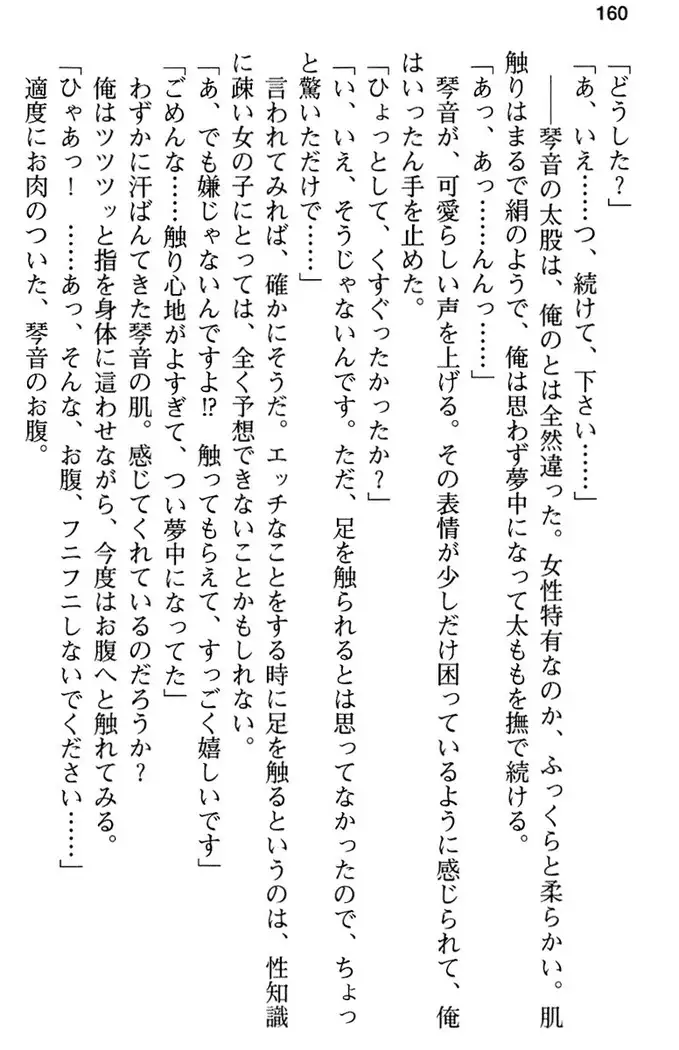 160
「どうした？」
「あ、いえ……つ、続けて、下さい……」
――琴音の太股は、俺のとは全然違った。女性特有なのか、ふっくらと柔らかい。肌
触りはまるで絹のようで、俺は思わず夢中になって太ももを撫で続ける。
「あっ、あっ……んんっ……」
琴音が、可愛らしい声を上げる。その表情が少しだけ困っているように感じられて、俺
はいったん手を止めた。
「ひょっとして、くすぐったかったか？」
「い、いえ、そうじゃないんです。ただ、足を触られるとは思ってなかったので、ちょっ
と驚いただけで……」
言われてみれば、確かにそうだ。エッチなことをする時に足を触るというのは、性知識
に疎い女の子にとっては、全く予想できないことかもしれない。
「あ、でも嫌じゃないんですよ⁉　触ってもらえて、すっごく嬉しいです」
「ごめんな……触り心地がよすぎて、つい夢中になってた」
わずかに汗ばんできた琴音の肌。感じてくれているのだろうか？
俺はツツツッと指を身体に這わせながら、今度はお腹へと触れてみる。
「ひゃあっ！　……あっ、そんな、お腹、フニフニしないでください……」
適度にお肉のついた、琴音のお腹。